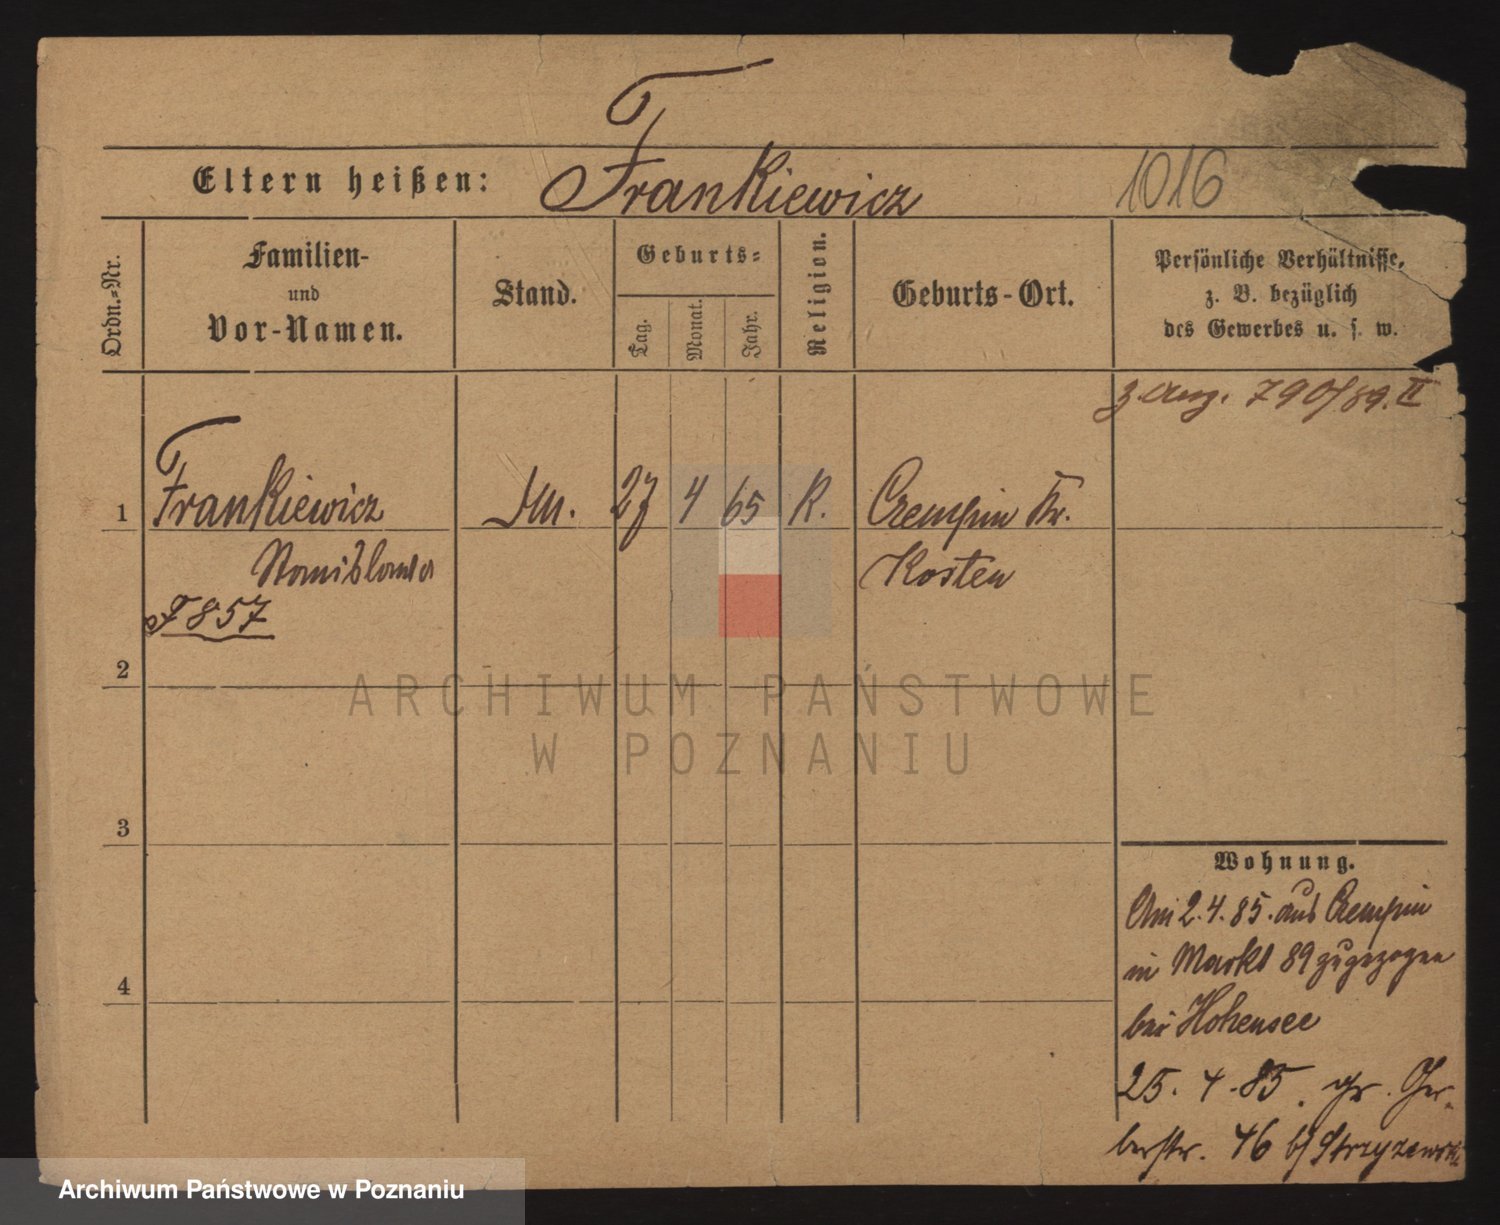 Eltern heißen: Frankiewicz 1016
Ordn.-Nr.
Familien-
und
Vor-Namen.
Stand.
Geburts-
Tag.
Monat.
Jahr.
Religion.
Geburts-Ort.
Persönliche Verhältnisse,
z. B. bezüglich
des Gewerbes u. s. w.
z. Ang. 790/89. II
1 Frankiewicz 27 4 65 K. Czempin Kr.
Stanislawa Kosten
F 857
2
3
4
Wohnung.
Am 2.4.85. aus Czempin
in Markt 89 zugezogen
bei Hohensee
25. 4. 85. gr. Ger-
berstr. 46 b/ Strzyzewski
ARCHIWUM PAŃSTWOWE
W POZNANIU
Archiwum Państwowe w Poznaniu